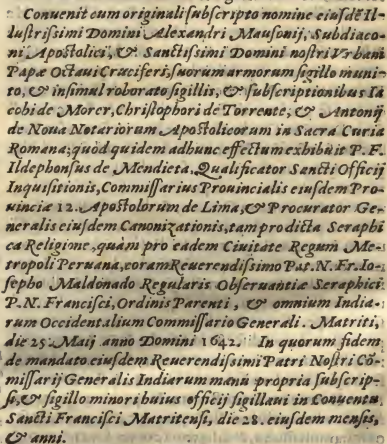 Conuenit cum originali subscripto nomine eiusdē Il-
lustrissimi Domini Alexandri Mausonij, Subdiaco-
ni Apostolici, & Sanctissimi Domini nostri Vrbani
Papæ Octaui Cruciferi, suorum armorum sigillo muni-
to, & insimul roborato sigillis, & subscriptionibus Ia
cobi de Morer, Christophori de Torrente, & Antonij
de Noua Notariorum Apostolicorum in Sacra Curia
Romana; quòd quidem adhunc effectum exhibuit P. F.
Ildephonsus de Mendieta, Qualificator Sancti Officij
Inquisitionis, Commissarius Prouincialis eiusdem Pro-
uinciæ 12. Apostolorum de Lima, & Procurator Ge-
neralis eiusdem Canonizationis, tam pro dicta Seraphi
ca Religione, quàm pro eadem Ciuitate Regum Me-
tropoli Peruana, coram Reuerendissimo Pat. N. Fr. Io-
sepho Maldonado Regularis Obseruantiæ Seraphici
P. N. Francisci, Ordinis Parenti, & omnium India-
rum Occidentalium Commissario Generali. Matriti,
die 25. Maij anno Domini 1642. In quorum fidem
de mandato eiusdem Reuerendissimi Patri Nostri Cō-
missarij Generalis Indiarum manu propria subscrip-
si, & sigillo minori huius officij sigillaui in Conuentu
Sancti Francisci Matritensi, die 28. eiusdem mensis,
& anni.